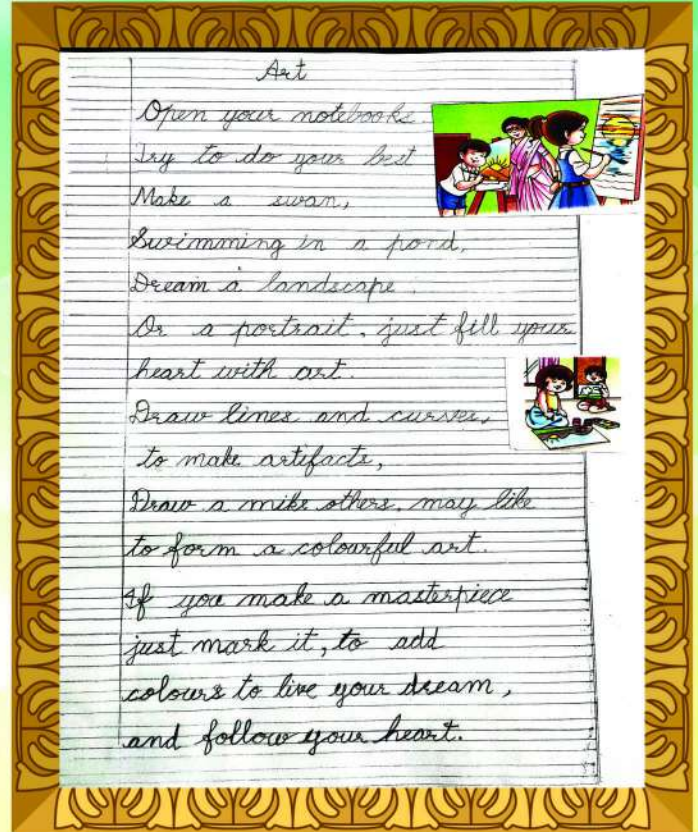 Art
Open your notebooks
Try to do your best
Make a swan,
Swimming in a pond,
Dream a landscape.
Or a portrait, just fill your
heart with art.
Draw lines and curves,
to make artifacts,
Draw a mike others, may like
to form a colourful art.
If you make a masterpiece
just mark it, to add
colours to live your dream,
and follow your heart.